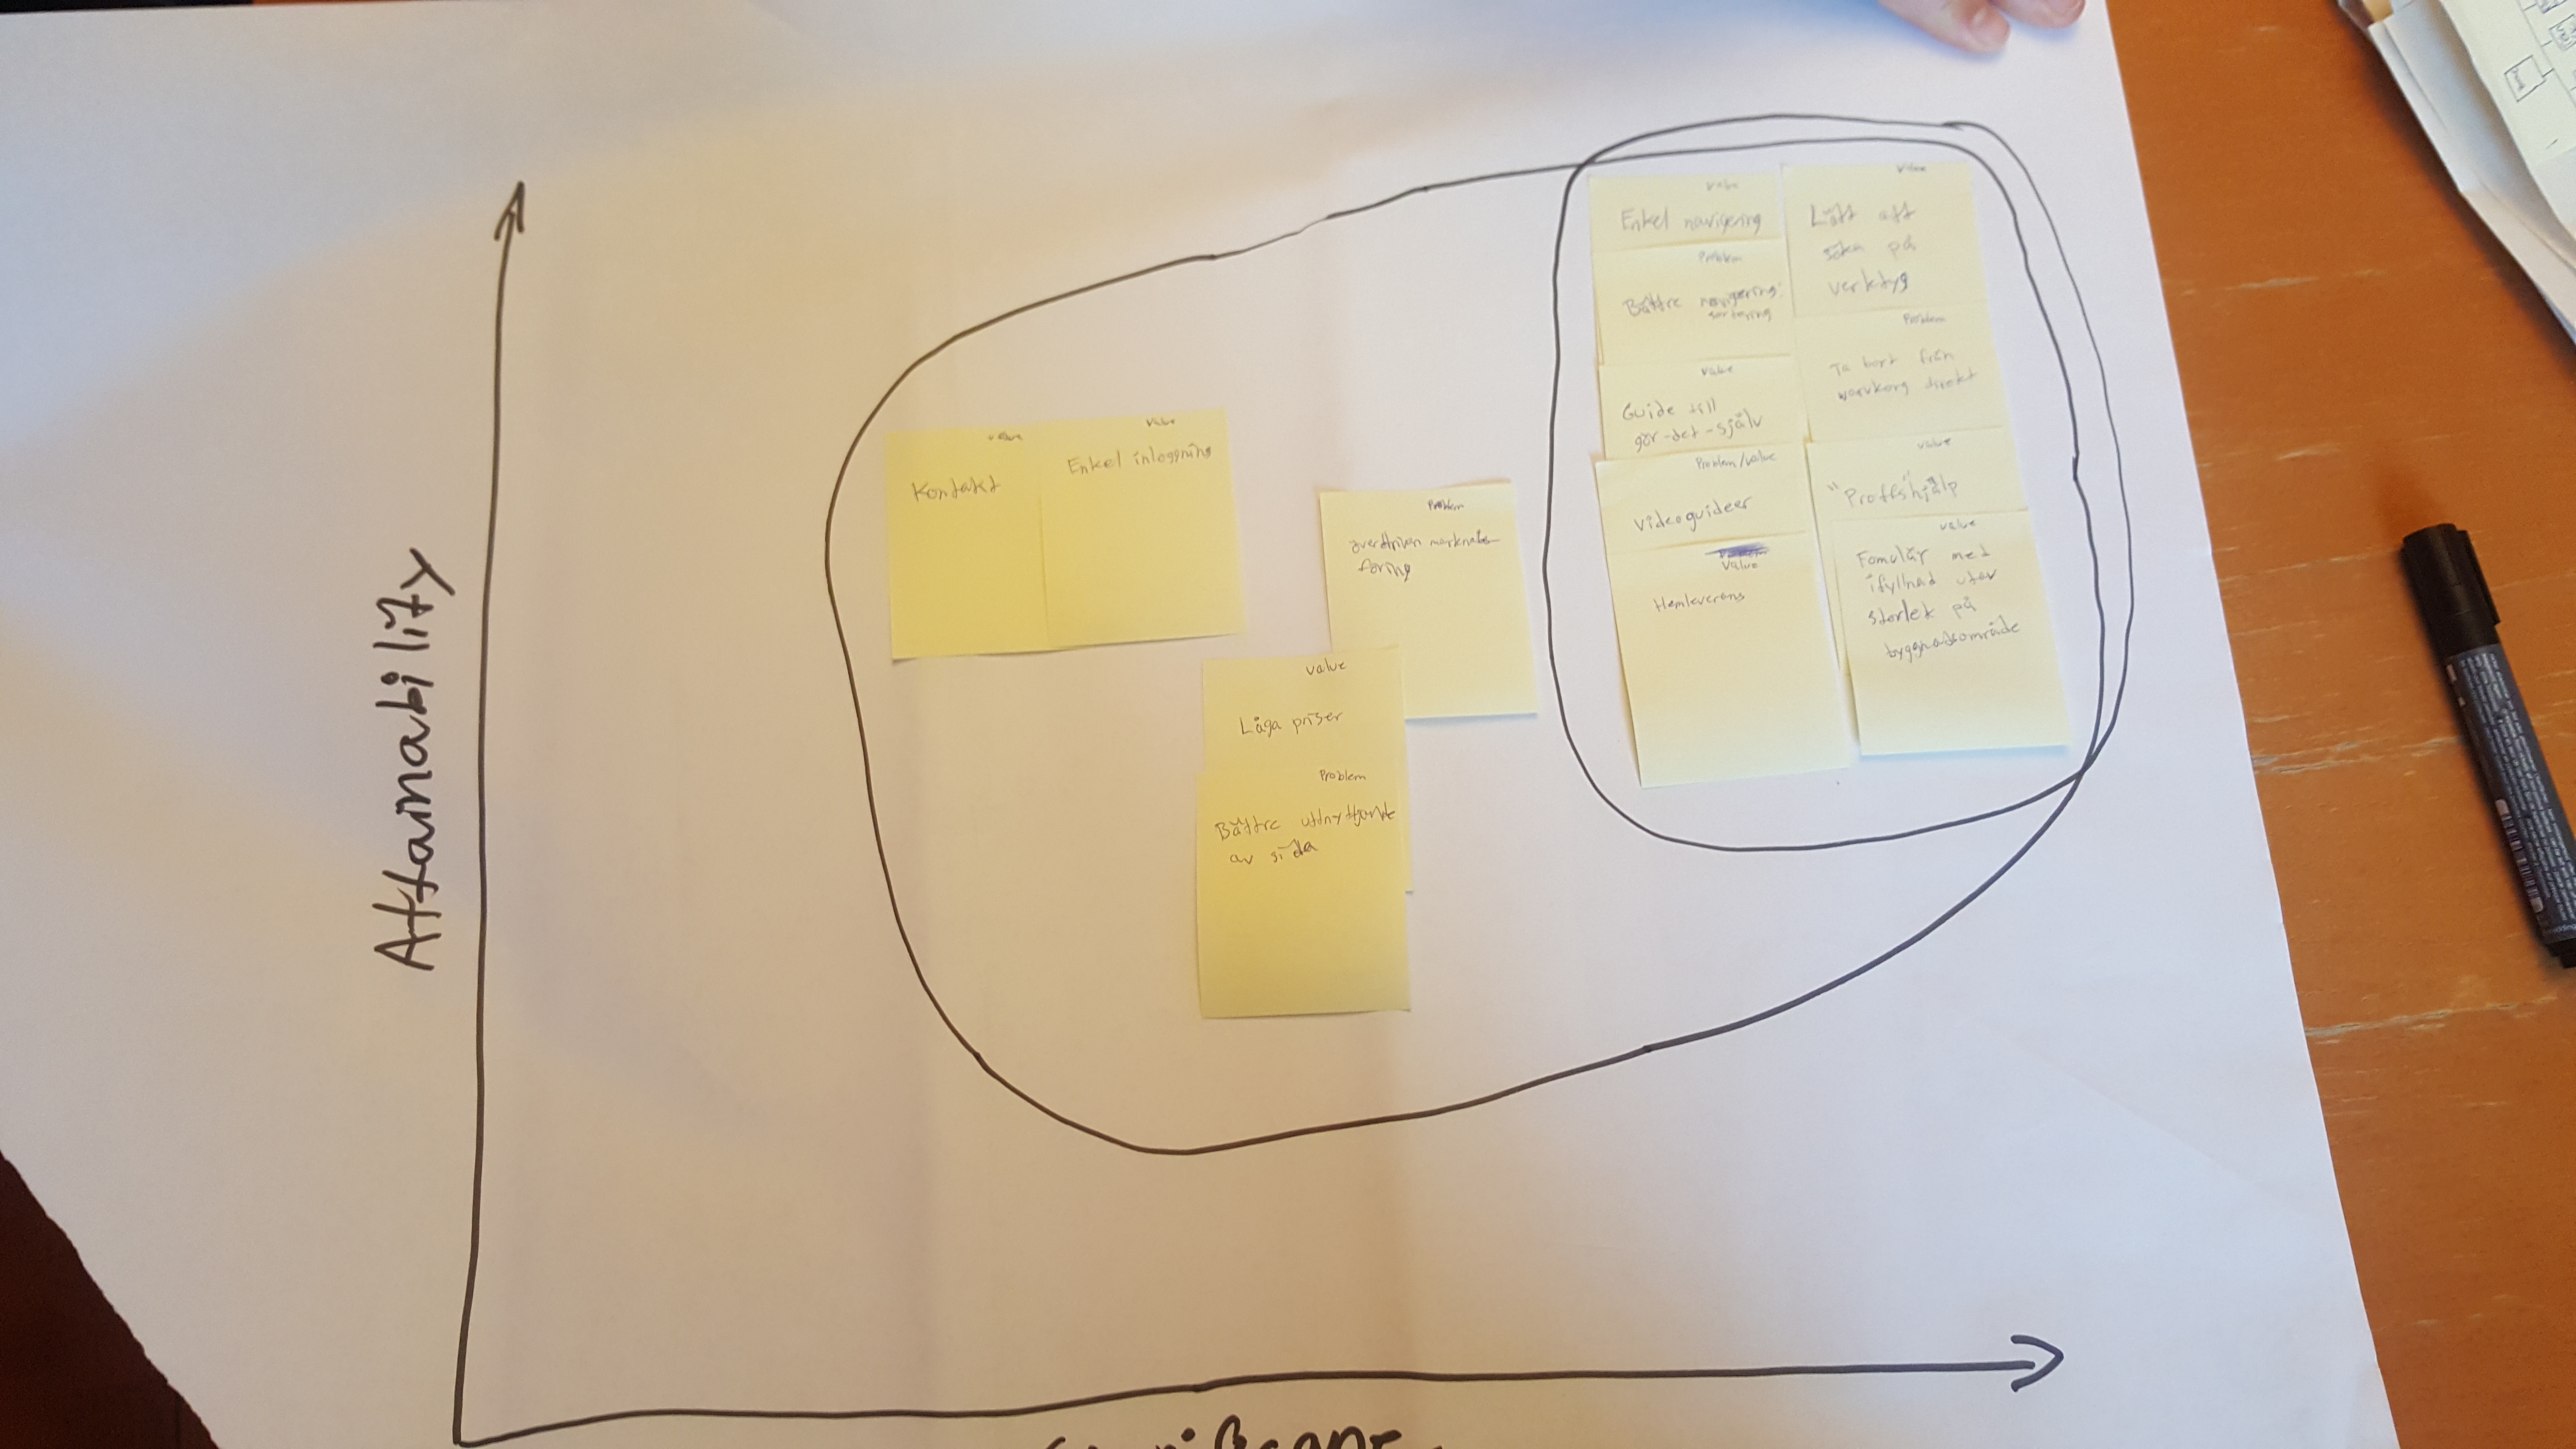 Attainability
value
Kontakt
value
Enkel inloggning
value
Låga priser
Problem
Bättre uttnyttjande
av sida
Problem
överdriven marknads-
föring
value
Enkel navigering
Problem
Bättre navigering:
sortering
value
Guide till
gör-det-själv
Problem/value
Videoguider
value
Hemleverans
value
Lätt att
söka på
verktyg
Problem
Ta bort från
varukorg direkt
value
"Proffshjälp
value
Fomulär med
ifyllnad utav
storlek på
byggnadsområde